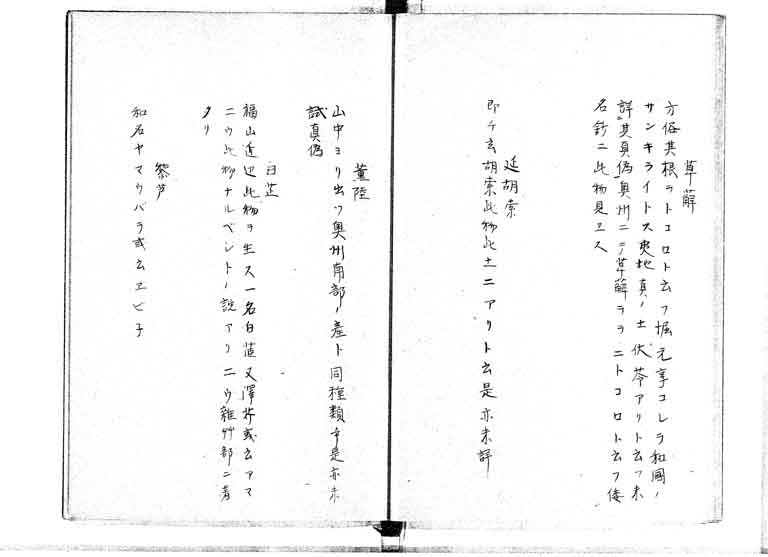 萆薢
方俗其根ヲトコロト云フ堀元享コレヲ和國ノ
サンキライトス夷地真ノ土伏苓アリト云フ未
詳其真偽奥州ニテ萆薢ヲヲニトコロト云フ倭
名鈔ニ此物見ヱス
延胡索
即チ玄胡索此物此土ニアリト云是亦未詳
薫陸
山中ヨリ出ツ奥州南部ノ産ト同種類乎是亦未
試真偽
白芷
福山近辺此物ヲ生ス一名白茝又澤芬或云アマ
ニウ此物ナルベシトノ説アリニウ雜艸部ニ著
タリ
藜芦
和名ヤマウバラ或云ヱビ子